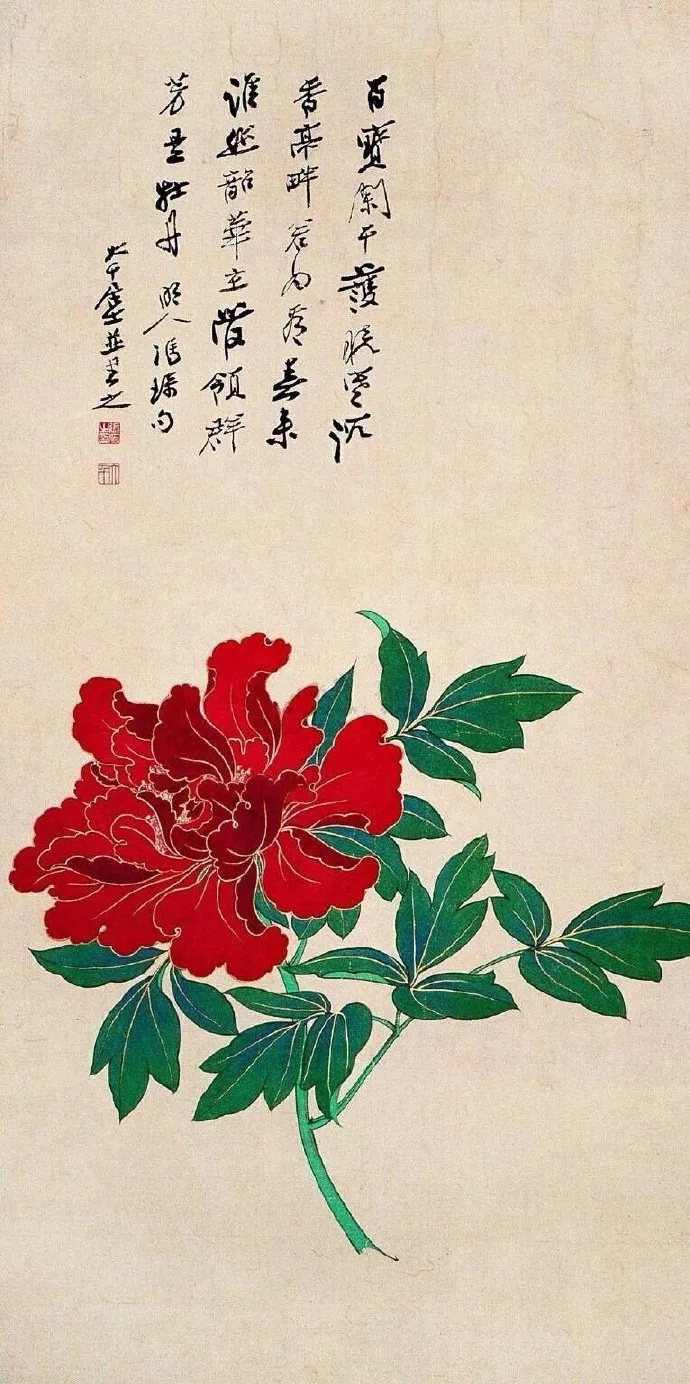 百寶闌干護曉寒沉
香亭畔若為看春來
誰作韶華主管領群
芳是牡丹 明人馮琢句
大千爰並書之